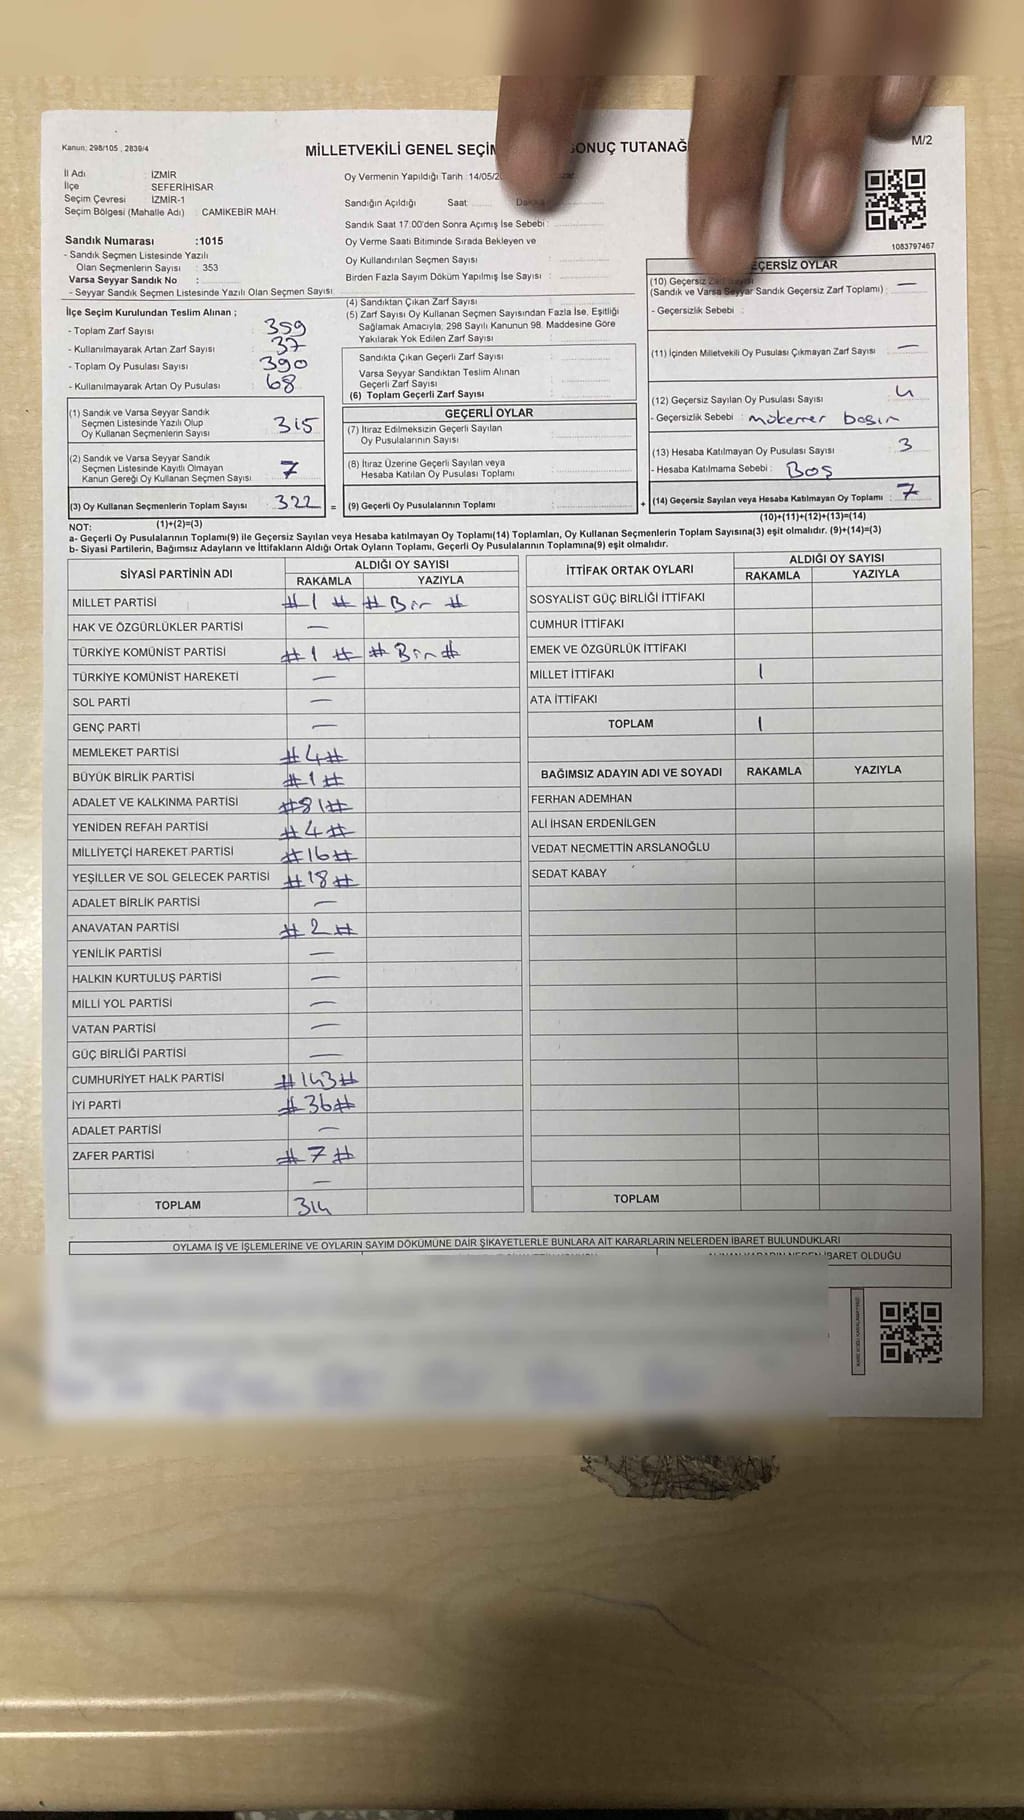 Kanun: 298/105 , 2839/4
MİLLETVEKİLİ GENEL SEÇİM SONUÇ TUTANAĞ
M/2
İl Adı : İZMİR
İlçe : SEFERİHİSAR
Seçim Çevresi : İZMİR-1
Seçim Bölgesi (Mahalle Adı) : CAMİKEBİR MAH.
Oy Vermenin Yapıldığı Tarih : 14/05/2
Sandığın Açıldığı Saat Dakika
Sandık Saat 17:00'den Sonra Açımış İse Sebebi :
Oy Verme Saati Bitiminde Sırada Bekleyen ve
Oy Kullandırılan Seçmen Sayısı :
Birden Fazla Sayım Döküm Yapılmış İse Sayısı :
1083797467
Sandık Numarası :1015
- Sandık Seçmen Listesinde Yazılı
Olan Seçmenlerin Sayısı : 353
Varsa Seyyar Sandık No :
- Seyyar Sandık Seçmen Listesinde Yazılı Olan Seçmen Sayısı :
İlçe Seçim Kurulundan Teslim Alınan ;
- Toplam Zarf Sayısı : 359
- Kullanılmayarak Artan Zarf Sayısı : 37
- Toplam Oy Pusulası Sayısı : 390
- Kullanılmayarak Artan Oy Pusulası : 68
(1) Sandık ve Varsa Seyyar Sandık
Seçmen Listesinde Yazılı Olup
Oy Kullanan Seçmenlerin Sayısı 315
(2) Sandık ve Varsa Seyyar Sandık
Seçmen Listesinde Kayıtlı Olmayan
Kanun Gereği Oy Kullanan Seçmen Sayısı 7
(3) Oy Kullanan Seçmenlerin Toplam Sayısı 322 =
(4) Sandıktan Çıkan Zarf Sayısı :
(5) Zarf Sayısı Oy Kullanan Seçmen Sayısından Fazla İse, Eşitliği
Sağlamak Amacıyla; 298 Sayılı Kanunun 98. Maddesine Göre
Yakılarak Yok Edilen Zarf Sayısı :
Sandıkta Çıkan Geçerli Zarf Sayısı :
Varsa Seyyar Sandıktan Teslim Alınan
Geçerli Zarf Sayısı :
(6) Toplam Geçerli Zarf Sayısı :
GEÇERLİ OYLAR
(7) İtiraz Edilmeksizin Geçerli Sayılan
Oy Pusulalarının Sayısı :
(8) İtiraz Üzerine Geçerli Sayılan veya
Hesaba Katılan Oy Pusulası Toplamı :
(9) Geçerli Oy Pusulalarının Toplamı : +
GEÇERSİZ OYLAR
(10) Geçersiz Zarf Sayısı
(Sandık ve Varsa Seyyar Sandık Geçersiz Zarf Toplamı) : —
- Geçersizlik Sebebi :
(11) İçinden Milletvekili Oy Pusulası Çıkmayan Zarf Sayısı : —
(12) Geçersiz Sayılan Oy Pusulası Sayısı : 4
- Geçersizlik Sebebi : mükerrer basım
(13) Hesaba Katılmayan Oy Pusulası Sayısı : 3
- Hesaba Katılmama Sebebi : Boş
(14) Geçersiz Sayılan veya Hesaba Katılmayan Oy Toplamı : 7
NOT: (1)+(2)=(3) (10)+(11)+(12)+(13)=(14)
a- Geçerli Oy Pusulalarının Toplamı(9) ile Geçersiz Sayılan veya Hesaba katılmayan Oy Toplamı(14) Toplamları, Oy Kullanan Seçmenlerin Toplam Sayısına(3) eşit olmalıdır. (9)+(14)=(3)
b- Siyasi Partilerin, Bağımsız Adayların ve İttifakların Aldığı Ortak Oyların Toplamı, Geçerli Oy Pusulalarının Toplamına(9) eşit olmalıdır.
SİYASİ PARTİNİN ADI ALDIĞI OY SAYISI
RAKAMLA YAZIYLA
MİLLET PARTİSİ #1# #Bir#
HAK VE ÖZGÜRLÜKLER PARTİSİ —
TÜRKİYE KOMÜNİST PARTİSİ #1# #Bir#
TÜRKİYE KOMÜNİST HAREKETİ —
SOL PARTİ —
GENÇ PARTİ —
MEMLEKET PARTİSİ #4#
BÜYÜK BİRLİK PARTİSİ #1#
ADALET VE KALKINMA PARTİSİ #81#
YENİDEN REFAH PARTİSİ #4#
MİLLİYETÇİ HAREKET PARTİSİ #16#
YEŞİLLER VE SOL GELECEK PARTİSİ #18#
ADALET BİRLİK PARTİSİ —
ANAVATAN PARTİSİ #2#
YENİLİK PARTİSİ —
HALKIN KURTULUŞ PARTİSİ —
MİLLİ YOL PARTİSİ —
VATAN PARTİSİ —
GÜÇ BİRLİĞİ PARTİSİ —
CUMHURİYET HALK PARTİSİ #143#
İYİ PARTİ #36#
ADALET PARTİSİ —
ZAFER PARTİSİ #7#
—
TOPLAM 314
İTTİFAK ORTAK OYLARI ALDIĞI OY SAYISI
RAKAMLA YAZIYLA
SOSYALİST GÜÇ BİRLİĞİ İTTİFAKI
CUMHUR İTTİFAKI
EMEK VE ÖZGÜRLÜK İTTİFAKI
MİLLET İTTİFAKI 1
ATA İTTİFAKI
TOPLAM 1
BAĞIMSIZ ADAYIN ADI VE SOYADI RAKAMLA YAZIYLA
FERHAN ADEMHAN
ALİ İHSAN ERDENİLGEN
VEDAT NECMETTİN ARSLANOĞLU
SEDAT KABAY
TOPLAM
OYLAMA İŞ VE İŞLEMLERİNE VE OYLARIN SAYIM DÖKÜMÜNE DAİR ŞİKAYETLERLE BUNLARA AİT KARARLARIN NELERDEN İBARET BULUNDUKLARI
İBARET OLDUĞU